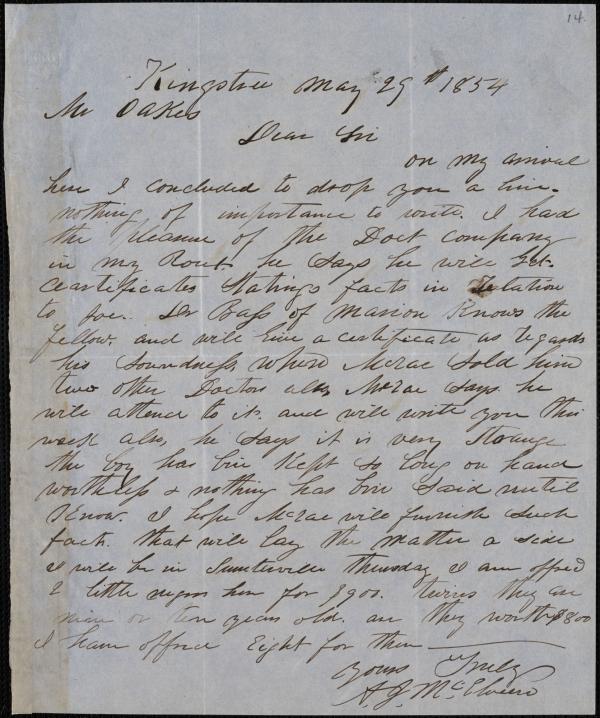 14.
Kingstree May 29th 1854
Mr Oakes
Dear Sir
on my arrival
here I concluded to drop you a line.
nothing of importance to write. I had
the pleasure of the Doct company
in my Rout. he says he will get
Ceartificates Stating facts in Relation
to Joe. Dr Bass of Marion Knows the
fellow. and will give a certificate as regards
his soundness, when McRae sold him
two other Doctors also McRae says he
will attend to it. and will write you this
week also, he says it is very strange
the boy has bin Kept so long on hand
worthless & nothing has bin said until
Know. I hope McRae will furnish such
facts. that will lay the matter a side
I will be in Sumterville Thursday I am offred
2 little negros here for $900. they are
nine or ten years old. are they worth $800
I have offred Eight for them
yours Truly
A. J. McElveen